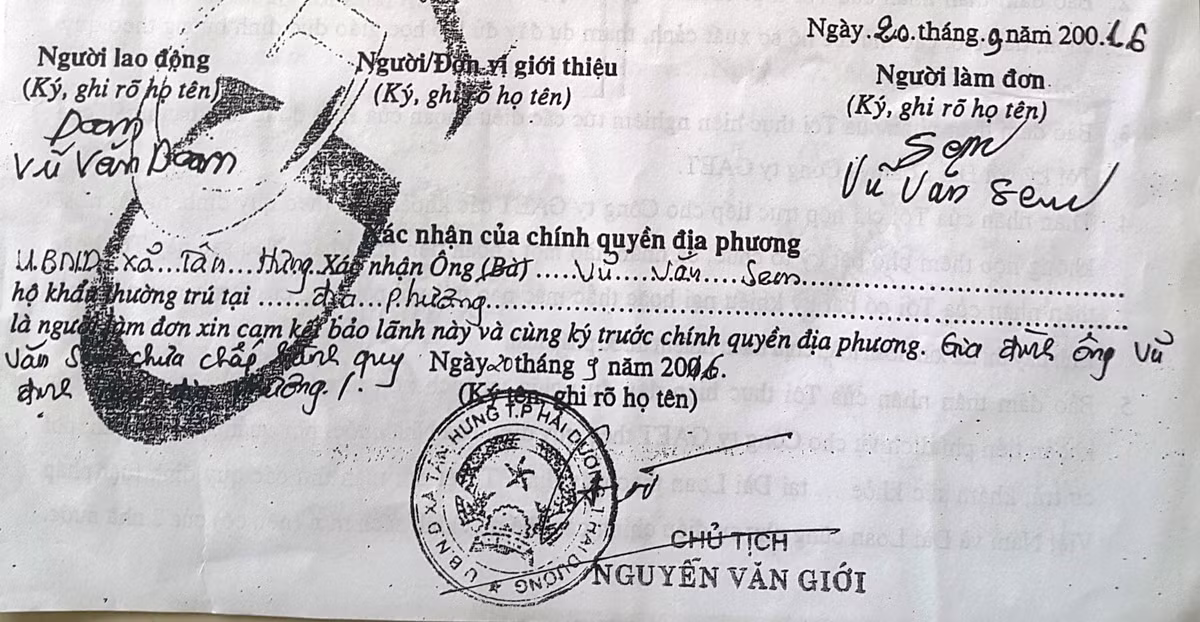 Ngày 20 tháng 9 năm 200 16
Người lao động
(Ký, ghi rõ họ tên)
Doam
Vũ Văn Doam
Người/Đơn vị giới thiệu
(Ký, ghi rõ họ tên)
Người làm đơn
(Ký, ghi rõ họ tên)
Sem
Vũ Văn Sem
Xác nhận của chính quyền địa phương
U.BND. xã Tân Hưng Xác nhận Ông (Bà) Vũ Văn Sem
hộ khẩu thường trú tại địa phương
là người làm đơn xin cam kết bảo lãnh này và cùng ký trước chính quyền địa phương. Gia đình ông Vũ
Văn chưa chấp hành quy
định phương./.
Ngày 20 tháng 9 năm 2016.
(Ký tên, ghi rõ họ tên)
U.B.N.D XÃ TÂN HƯNG T.P HẢI DƯƠNG T.HẢI DƯƠNG
CHỦ TỊCH
NGUYỄN VĂN GIỚI